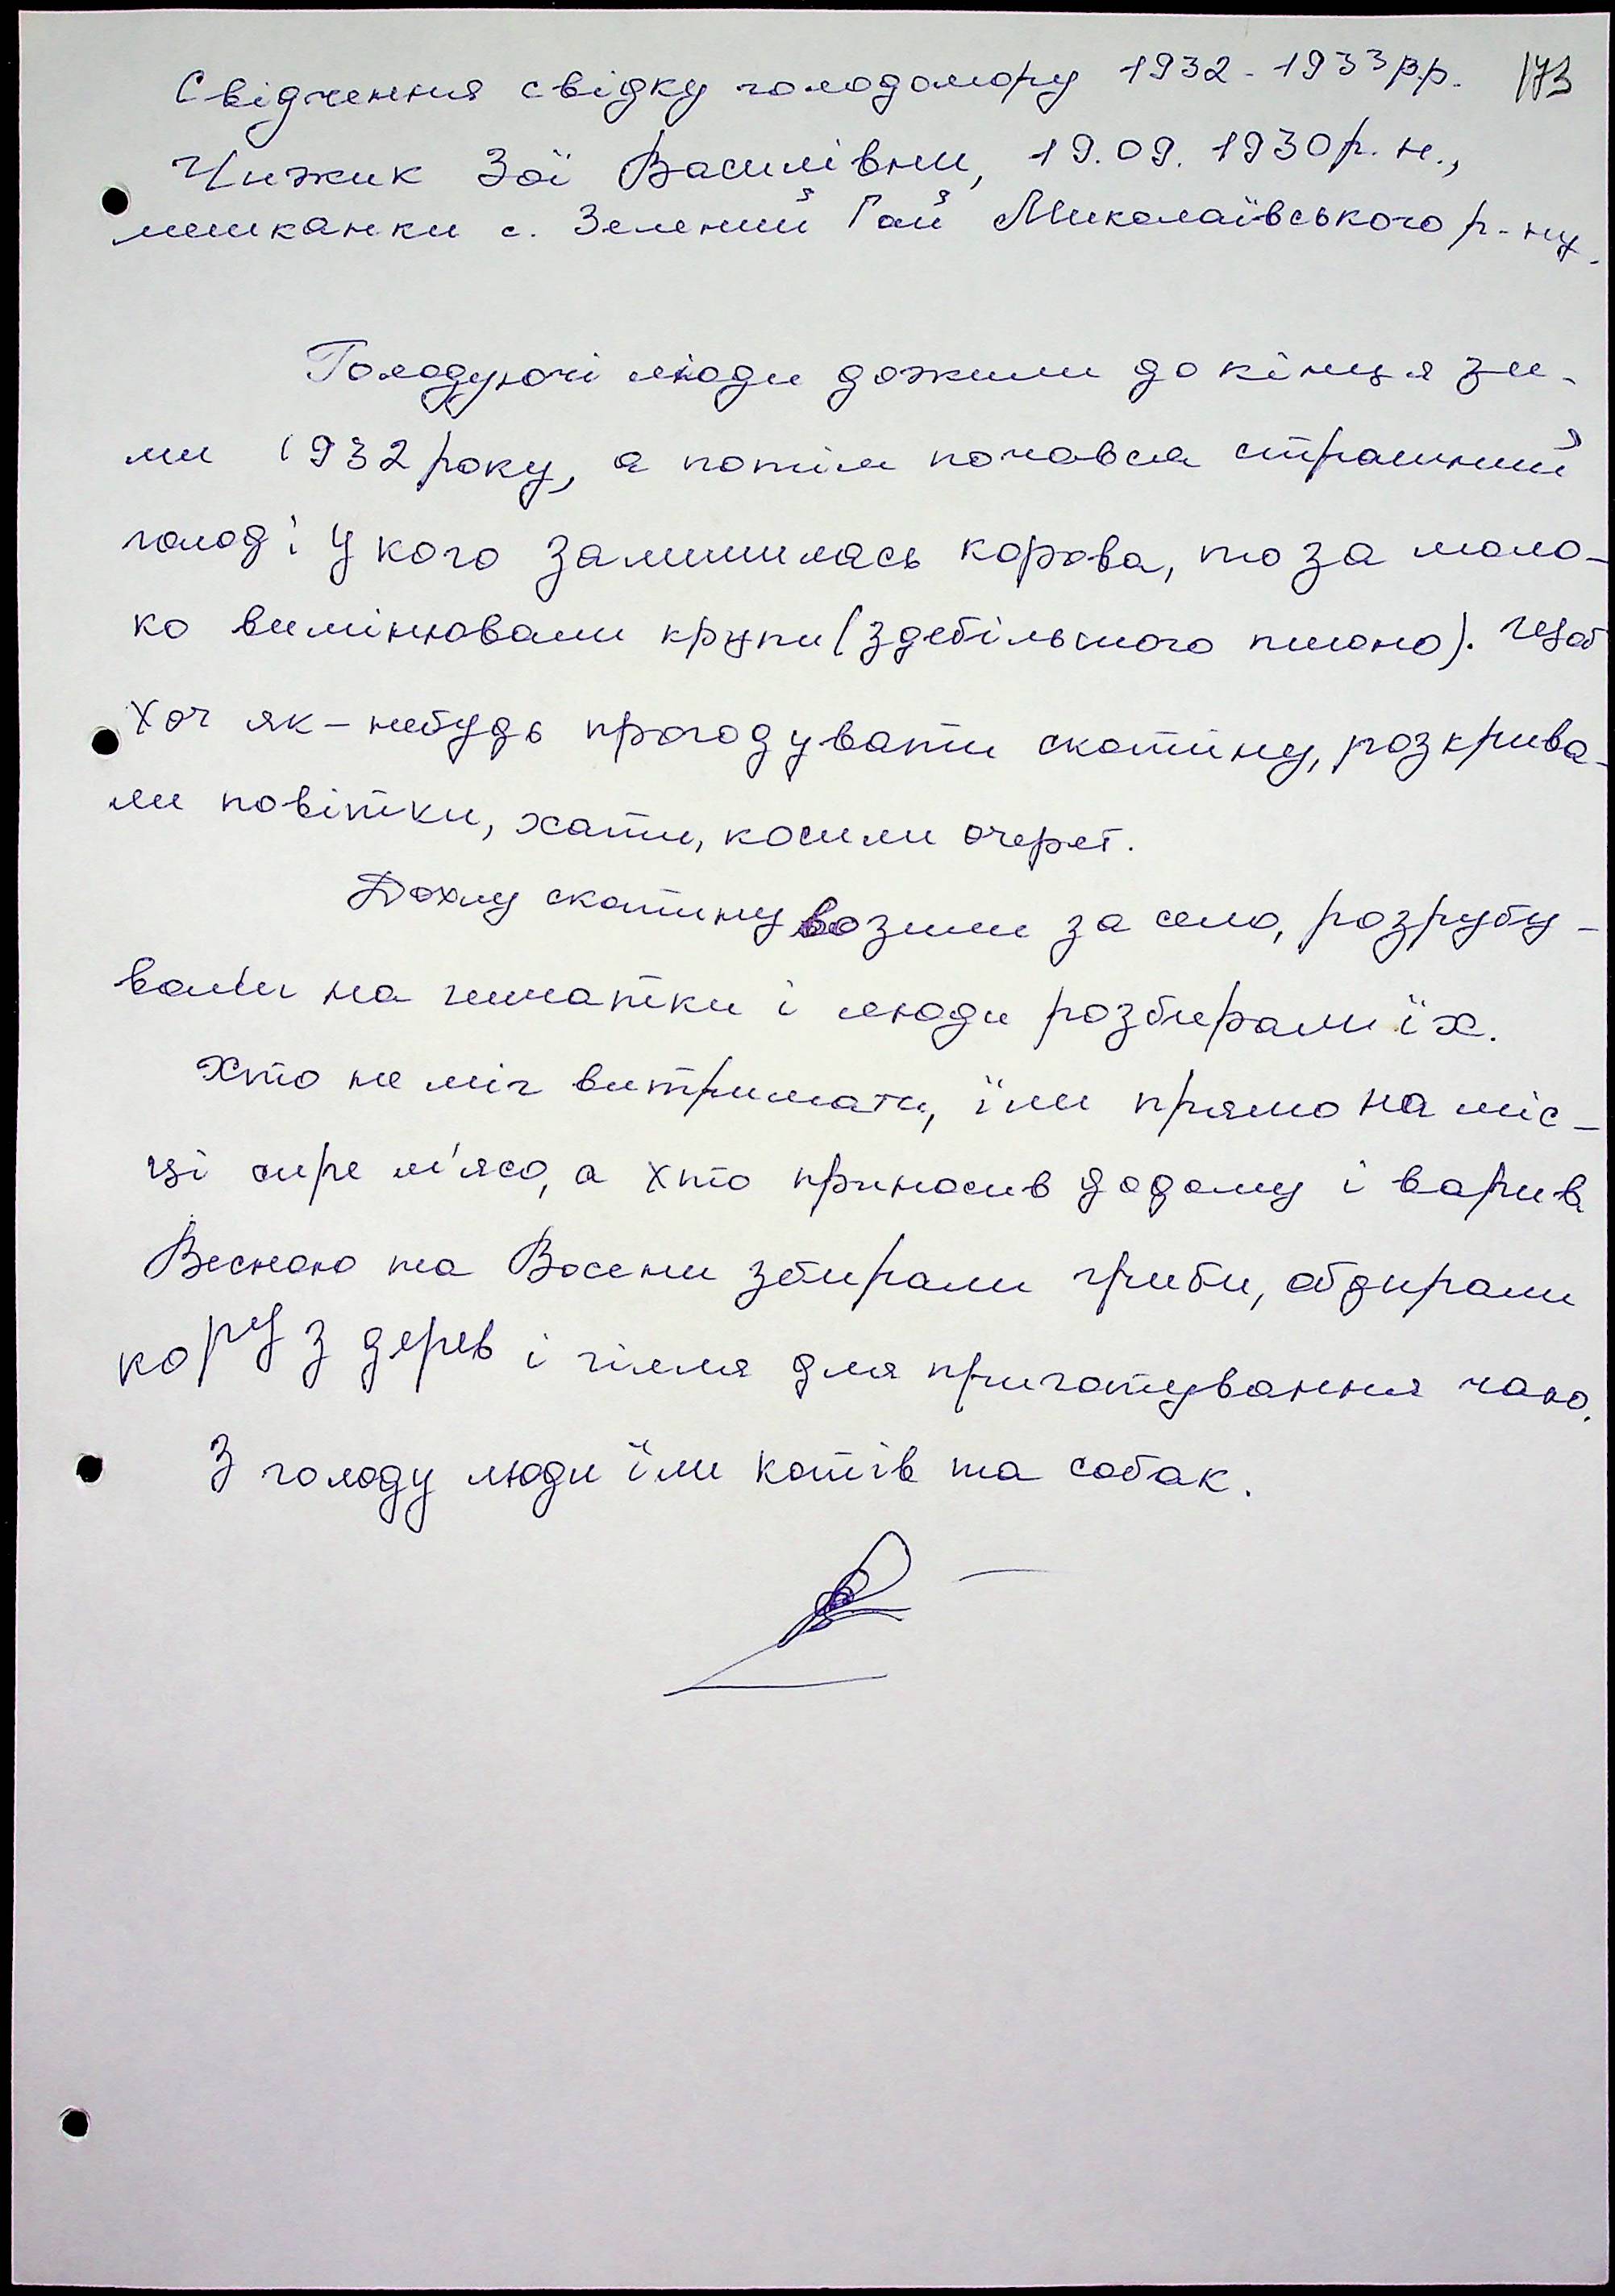 Свідчення свідку голодомору 1932-1933 р.р. 173
Чижик Зої Василівни, 19.09.1930 р. н.,
мешканки с. Зелений Гай Миколаївського р-ну.
Голодуючі люди дожили до кінця зи-
ми 1932 року, а потім почався страшний
голод і у кого залишилась корова, то за моло-
ко вимінювали крупи (здебільшого пшоно). Щоб
хоч як-небудь прогодувати скотину, розкрива-
ли повітки, хати, косили очерет.
Дохлу скотину возили за село, розрубу-
вали на шматки і люди розбирали їх.
Хто не міг витримати, їли прямо на міс-
ці сире м'ясо, а хто приносив додому і варив
Весною та Восени збирали гриби, обдирали
кору з дерев і гілля для приготування чаю.
З голоду люди їли котів та собак.